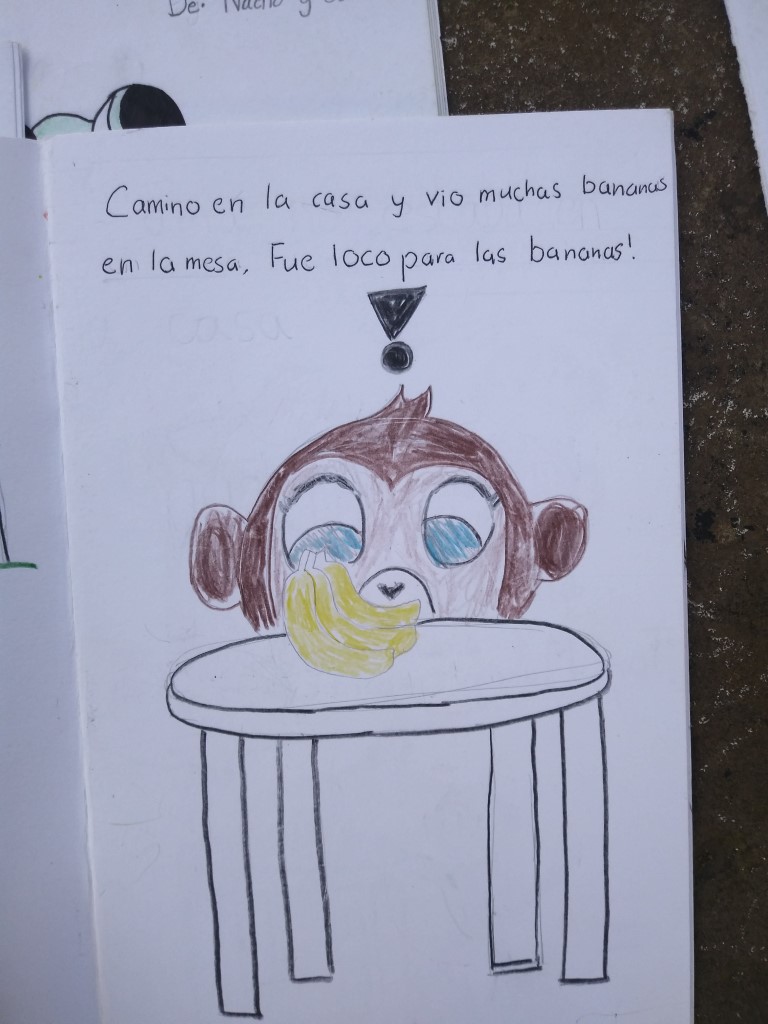 De: Nacho y
Camino en la casa y vio muchas bananas
en la mesa. Fue loco para las bananas!
casa